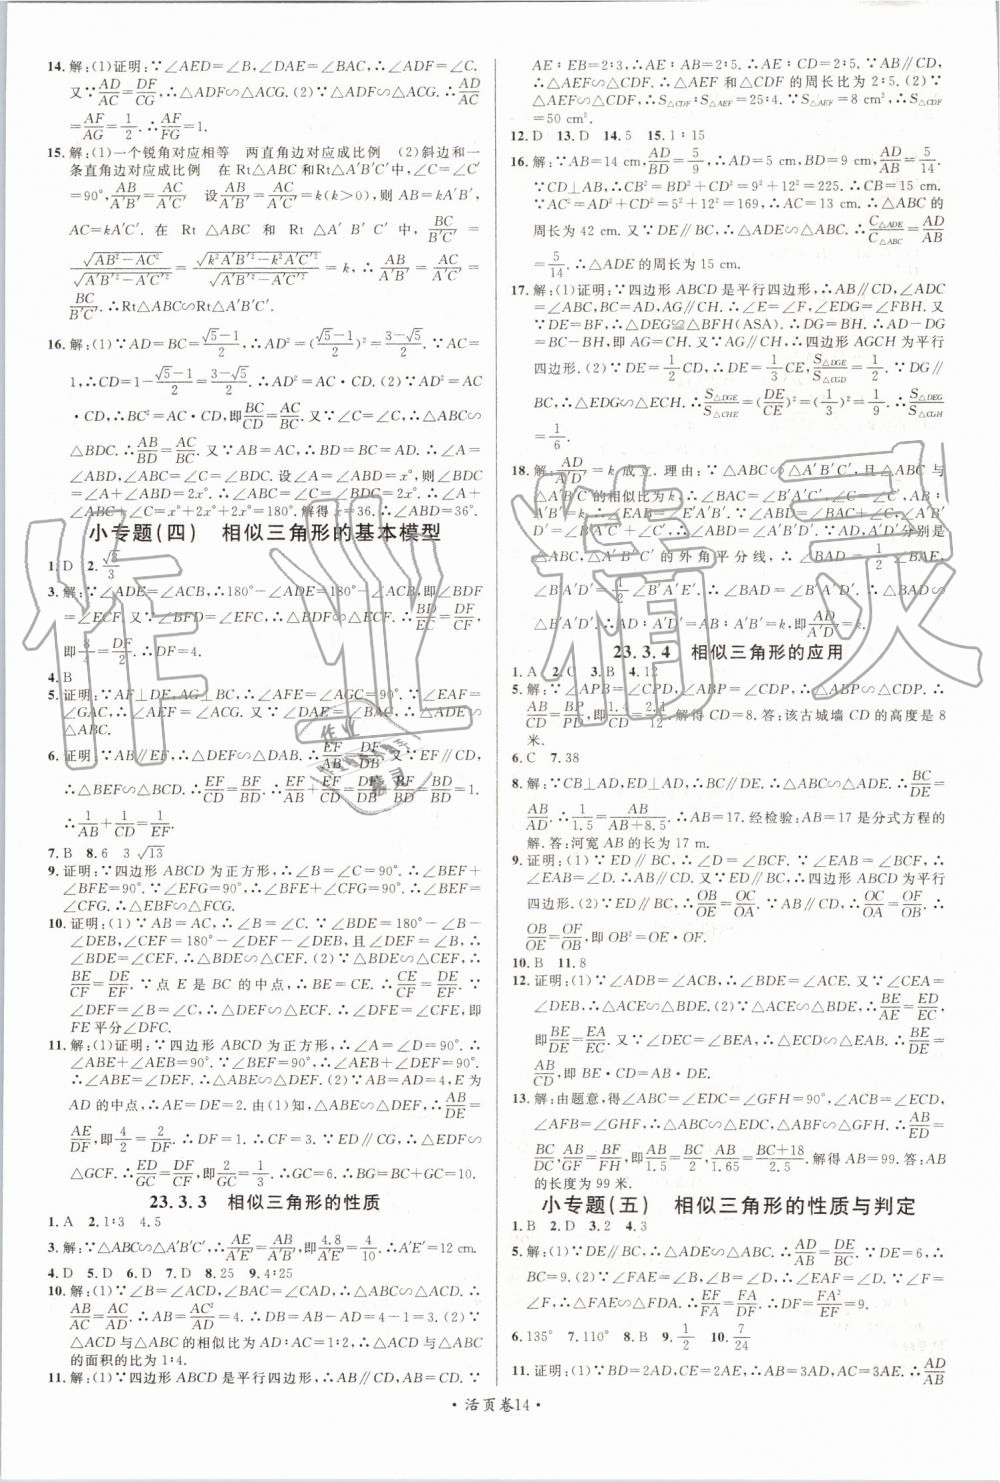 14.解:(1)证明:∵∠AED=∠B,∠DAE=∠BAC,∴∠ADF=∠C.
又∵AD/AC=DF/CG,∴△ADF∽△ACG.(2)∵△ADF∽△ACG,∴AD/AC=
AF/AG=1/2.∴AF/FG=1.
15.解:(1)一个锐角对应相等 两直角边对应成比例 (2)斜边和一
条直角边对应成比例 在Rt△ABC和Rt△A′B′C′中,∠C=∠C′=
90°,AB/A′B′=AC/A′C′. 设AB/A′B′=AC/A′C′=k(k>0),则AB=kA′B′,
AC=kA′C′.在 Rt △ABC 和 Rt △A′B′C′ 中,BC/B′C′=
√(AB²−AC²)/√(A′B′²−A′C′²)=√(k²A′B′²−k²A′C′²)/√(A′B′²−A′C′²)=k,∴AB/A′B′=AC/A′C′=
BC/B′C′.∴Rt△ABC∽Rt△A′B′C′.
16.解:(1)∵AD=BC=(√5−1)/2,∴AD²=((√5−1)/2)²=(3−√5)/2.∵AC=
1,∴CD=1−(√5−1)/2=(3−√5)/2.∴AD²=AC·CD.(2)∵AD²=AC
·CD,∴BC²=AC·CD,即BC/CD=AC/BC.又∵∠C=∠C,∴△ABC∽
△BDC.∴AB/BD=AC/BC.又∵AB=AC,∴BD=BC=AD.∴∠A=
∠ABD,∠ABC=∠C=∠BDC.设∠A=∠ABD=x°,则∠BDC=
∠A+∠ABD=2x°.∴∠ABC=∠C=∠BDC=2x°.∴∠A+
∠ABC+∠C=x°+2x°+2x°=180°.解得x=36.∴∠ABD=36°.
小专题(四) 相似三角形的基本模型
1.D 2.√3/3
3.解:∵∠ADE=∠ACB,∴180°−∠ADE=180°−∠ACB,即∠BDF
=∠ECF.又∵∠BFD=∠EFC,∴△BDF∽△ECF.∴BD/EC=DF/CF,
即8/4=DF/2.∴DF=4.
4.B
5.证明:∵AF⊥DE,AG⊥BC,∴∠AFE=∠AGC=90°.∵∠EAF=
∠GAC,∴∠AEF=∠ACG.又∵∠DAE=∠BAC,∴△ADE∽
△ABC.
6.证明:∵AB∥EF,∴△DEF∽△DAB.∴EF/AB=DF/DB.又∵EF∥CD,
∴△BEF∽△BCD.∴EF/CD=BF/BD.∴EF/AB+EF/CD=DF/DB+BF/BD=1.
∴1/AB+1/CD=1/EF.
7.B 8.6 3√13
9.证明:∵四边形ABCD为正方形,∴∠B=∠C=90°.∴∠BEF+
∠BFE=90°.∵∠EFG=90°,∴∠BFE+∠CFG=90°.∴∠BEF=
∠CFG.∴△EBF∽△FCG.
10.证明:(1)∵AB=AC,∴∠B=∠C.∵∠BDE=180°−∠B−
∠DEB,∠CEF=180°−∠DEF−∠DEB,且∠DEF=∠B,∴
∠BDE=∠CEF.∴△BDE∽△CEF.(2)∵△BDE∽△CEF,∴
BE/CF=DE/EF.∵点E是BC的中点,∴BE=CE.∴CE/CF=DE/EF.∵
∠DEF=∠B=∠C,∴△DEF∽△ECF.∴∠DFE=∠CFE,即
FE平分∠DFC.
11.解:(1)证明:∵四边形ABCD为正方形,∴∠A=∠D=90°.∴
∠ABE+∠AEB=90°.∵∠BEF=90°,∴∠AEB+∠DEF=90°.
∴∠ABE=∠DEF.∴△ABE∽△DEF.(2)∵AB=AD=4,E为
AD的中点,∴AE=DE=2.由(1)知,△ABE∽△DEF,∴AB/DE=
AE/DF,即4/2=2/DF.∴DF=1.∴CF=3.∵ED∥CG,∴△EDF∽
△GCF.∴ED/GC=DF/CF,即2/GC=1/3.∴GC=6.∴BG=BC+GC=10.
23.3.3 相似三角形的性质
1.A 2.1∶3 4.5
3.解:∵△ABC∽△A′B′C′,∴AE/A′E′=AB/A′B′,即4.8/A′E′=4/10.∴A′E′=12 cm.
4.D 5.D 6.D 7.D 8.25 9.4∶25
10.解:(1)∵∠B=∠ACD,∠BAC=∠CAD,∴△ABC∽△ACD.∴
AB/AC=AC/AD.∴AB=AC²/AD=4.∴BD=AB−AD=4−1=3.(2)∵
△ACD与△ABC的相似比为AD∶AC=1∶2,∴△ACD与△ABC
的面积的比为1∶4.
11.解:(1)∵四边形ABCD是平行四边形,∴AB=CD,AB∥CD.∵
AE∶EB=2∶3,∴AE∶AB=2∶5.∴AE∶CD=2∶5.∵AB∥CD,
∴△AEF∽△CDF.∴△AEF和△CDF的周长比为2∶5.(2)
∵△AEF∽△CDF,∴S△CDF∶S△AEF=25∶4.∵S△AEF=8 cm²,∴S△CDF
=50 cm².
12.D 13.D 14.5 15.1∶15
16.解:∵AB=14 cm,AD/BD=5/9,∴AD=5 cm,BD=9 cm,AD/AB=5/14.
∵CD⊥AB,∴CB²=BD²+CD²=9²+12²=225.∴CB=15 cm.
∵AC²=AD²+CD²=5²+12²=169,∴AC=13 cm.∴△ABC的
周长为42 cm.又∵DE∥BC,∴△ADE∽△ABC.∴C△ADE/C△ABC=AD/AB=
5/14.∴△ADE的周长为15 cm.
17.解:(1)证明:∵四边形ABCD是平行四边形,∴AB∥CD,∠ADC
=∠ABC,AD=BC,AG∥CH.∴∠E=∠F,∠EDG=∠FBH.又
∵DE=BF,∴△DEG≌△BFH(ASA).∴DG=BH.∴AD−DG
=BC−BH,即AG=CH.又∵AG∥CH,∴四边形AGCH为平行
四边形.(2)∵DE=1/2CD,∴DE=1/3CE,S△DGE/S△CGD=1/2.∵DG∥
BC,∴△EDG∽△ECH.∴S△DGE/S△CHE=(DE/CE)²=(1/3)²=1/9.∴S△DEG/S△CGH
=1/6.
18.解:AD/A′D′=k成立.理由:∵△ABC∽△A′B′C′,且△ABC与
△A′B′C′的相似比为k,∴∠B=∠B′,∠BAC=∠B′A′C′,AB∶
A′B′=k.∴∠BAE=∠B′A′E′.∵AD,A′D′分别是
△ABC,△A′B′C′的外角平分线,∴∠BAD=1/2∠BAE,
∠B′A′D′=1/2∠B′A′E′.∴∠BAD=∠B′A′D′.∴△BAD∽
△B′A′D′.∴AD∶A′D′=AB∶A′B′=k,即AD/A′D′=k.
23.3.4 相似三角形的应用
1.A 2.C 3.B 4.12
5.解:∵∠APB=∠CPD,∠ABP=∠CDP,∴△ABP∽△CDP.∴
AB/CD=BP/PD,即1.4/CD=2.1/12.解得CD=8.答:该古城墙CD的高度是8
米.
6.C 7.38
8.解:∵CB⊥AD,ED⊥AD,∴BC∥DE.∴△ABC∽△ADE.∴BC/DE=
AB/AD.∴1/1.5=AB/(AB+8.5).∴AB=17.经检验:AB=17是分式方程的
解.答:河宽AB的长为17 m.
9.证明:(1)∵ED∥BC,∴∠D=∠BCF.∵∠EAB=∠BCF,∴
∠EAB=∠D.∴AB∥CD.∵DE∥BC,∴四边形ABCD为平行
四边形.(2)∵DE∥BC,∴OB/OE=OC/OA.∵AB∥CD,∴OC/OA=OF/OB.∴
OB/OE=OF/OB,即OB²=OE·OF.
10.B 11.8
12.证明:(1)∵∠ADB=∠ACB,∴∠BDE=∠ACE.又∵∠CEA=
∠DEB,∴△ACE∽△BDE.(2)∵△ACE∽△BDE,∴BE/AE=ED/EC,
即BE/DE=EA/EC.又∵∠BEA=∠DEC,∴△ABE∽△CDE.∴BE/DE=
AB/CD,即BE·CD=AB·DE.
13.解:由题意,得∠ABC=∠EDC=∠GFH=90°,∠ACB=∠ECD,
∠AFB=∠GHF,∴△ABC∽△EDC,△ABF∽△GFH.∴AB/ED=
BC/DC,AB/GF=BF/FH,即AB/1.65=BC/2,AB/1.65=(BC+18)/2.5.解得AB=99.答:AB
的长度为99米.
小专题(五) 相似三角形的性质与判定
1.B 2.D 3.2 4.3
5.解:(1)∵DE∥BC,∴△ADE∽△ABC.∴AD/AB=DE/BC.∵DE=6,∴
BC=9.(2)∵∠FAE=∠B,DE∥BC,∴∠EAF=∠D.又∵∠F=
∠F,∴△FAE∽△FDA.∴EF/FA=FA/DF.∴DF=FA²/EF=9.
6.135° 7.110° 8.B 9.1/2 10.7/24
11.证明:(1)∵BD=2AD,CE=2AE,∴AB=3AD,AC=3AE.∴AD/AB
·活页卷14·
作业精灵
作业精灵